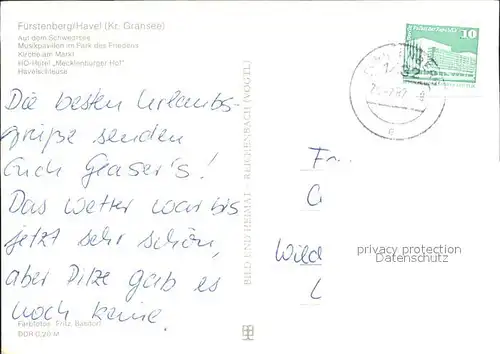 Fürstenberg/Havel (Kr. Gransee)
Auf dem Schwedtsee
Musikpavillon im Park des Friedens
Kirche am Markt
HO-Hotel „Mecklenburger Hof"
Havelschleuse
Die besten Urlaubs-
grüße senden
Euch Glaser's!
Das Wetter war bis
jetzt sehr schön,
aber Pilze gab es
noch keine.
Farbfotos: Fritz Bandorf
DDR 0,20 M
BILD UND HEIMAT - REICHENBACH (VOGTL)
10
Fr
Wild
privacy protection
Datenschutz